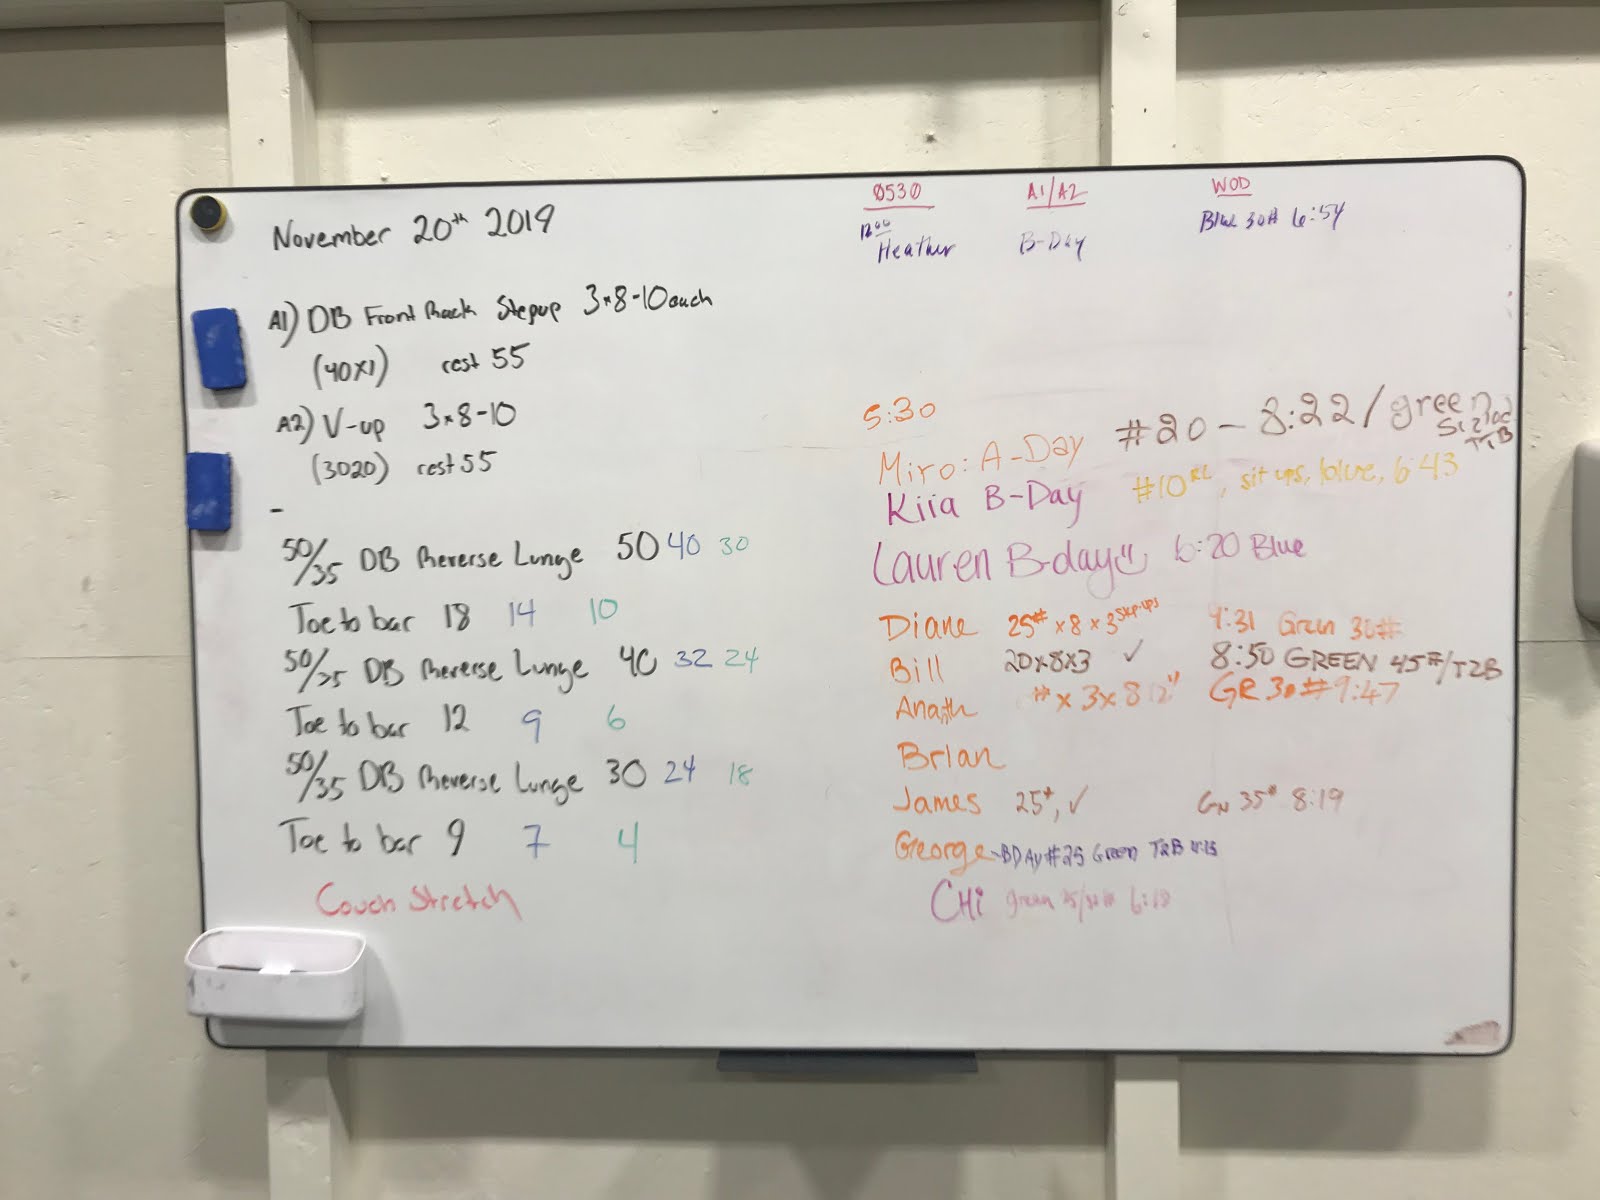 November 20th 2019
A1) DB Front Rack Stepup 3x8-10each
(40x1) rest 55
A2) V-up 3x8-10
(3020) rest 55
-
50/35 DB Reverse Lunge 50 40 30
Toe to bar 18 14 10
50/35 DB Reverse Lunge 40 32 24
Toe to bar 12 9 6
50/35 DB Reverse Lunge 30 24 18
Toe to bar 9 7 4
Couch Stretch
0530 A1/A2 WOD
1200
Heather B-Day Blue 30# 6:54
5:30
Miro: A-Day #20 - 8:22/green
Kiia B-Day #10 sit ups, blue, 6:43
Lauren B-day 6:20 Blue
Diane 25# x 8 x 3 step-ups 9:31 Green 30#
Bill 20x8x3 ✓ 8:50 GREEN 45#/T2B
# x 3x8 12" GR 30# 9:47
Brian
James 25#, ✓ GN 35# 8:19
George-BDAY #25 Green T2B
CHi green 6:18